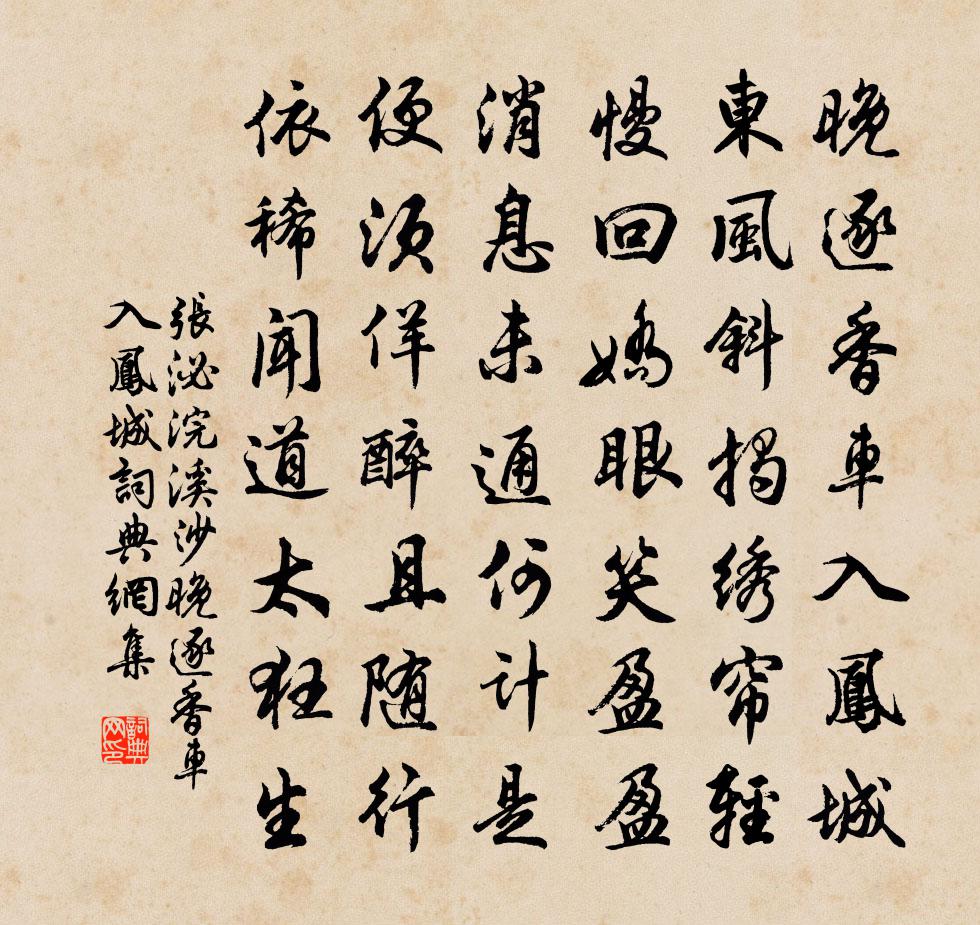 晚逐香車入鳳城
東風斜揭綉帘輕
慢回嬌眼笑盈盈
消息未通何計是
便須佯醉且随行
依稀聞道太狂生
張泌浣溪沙晚逐香車
入鳳城詞典網集
詞典
网印